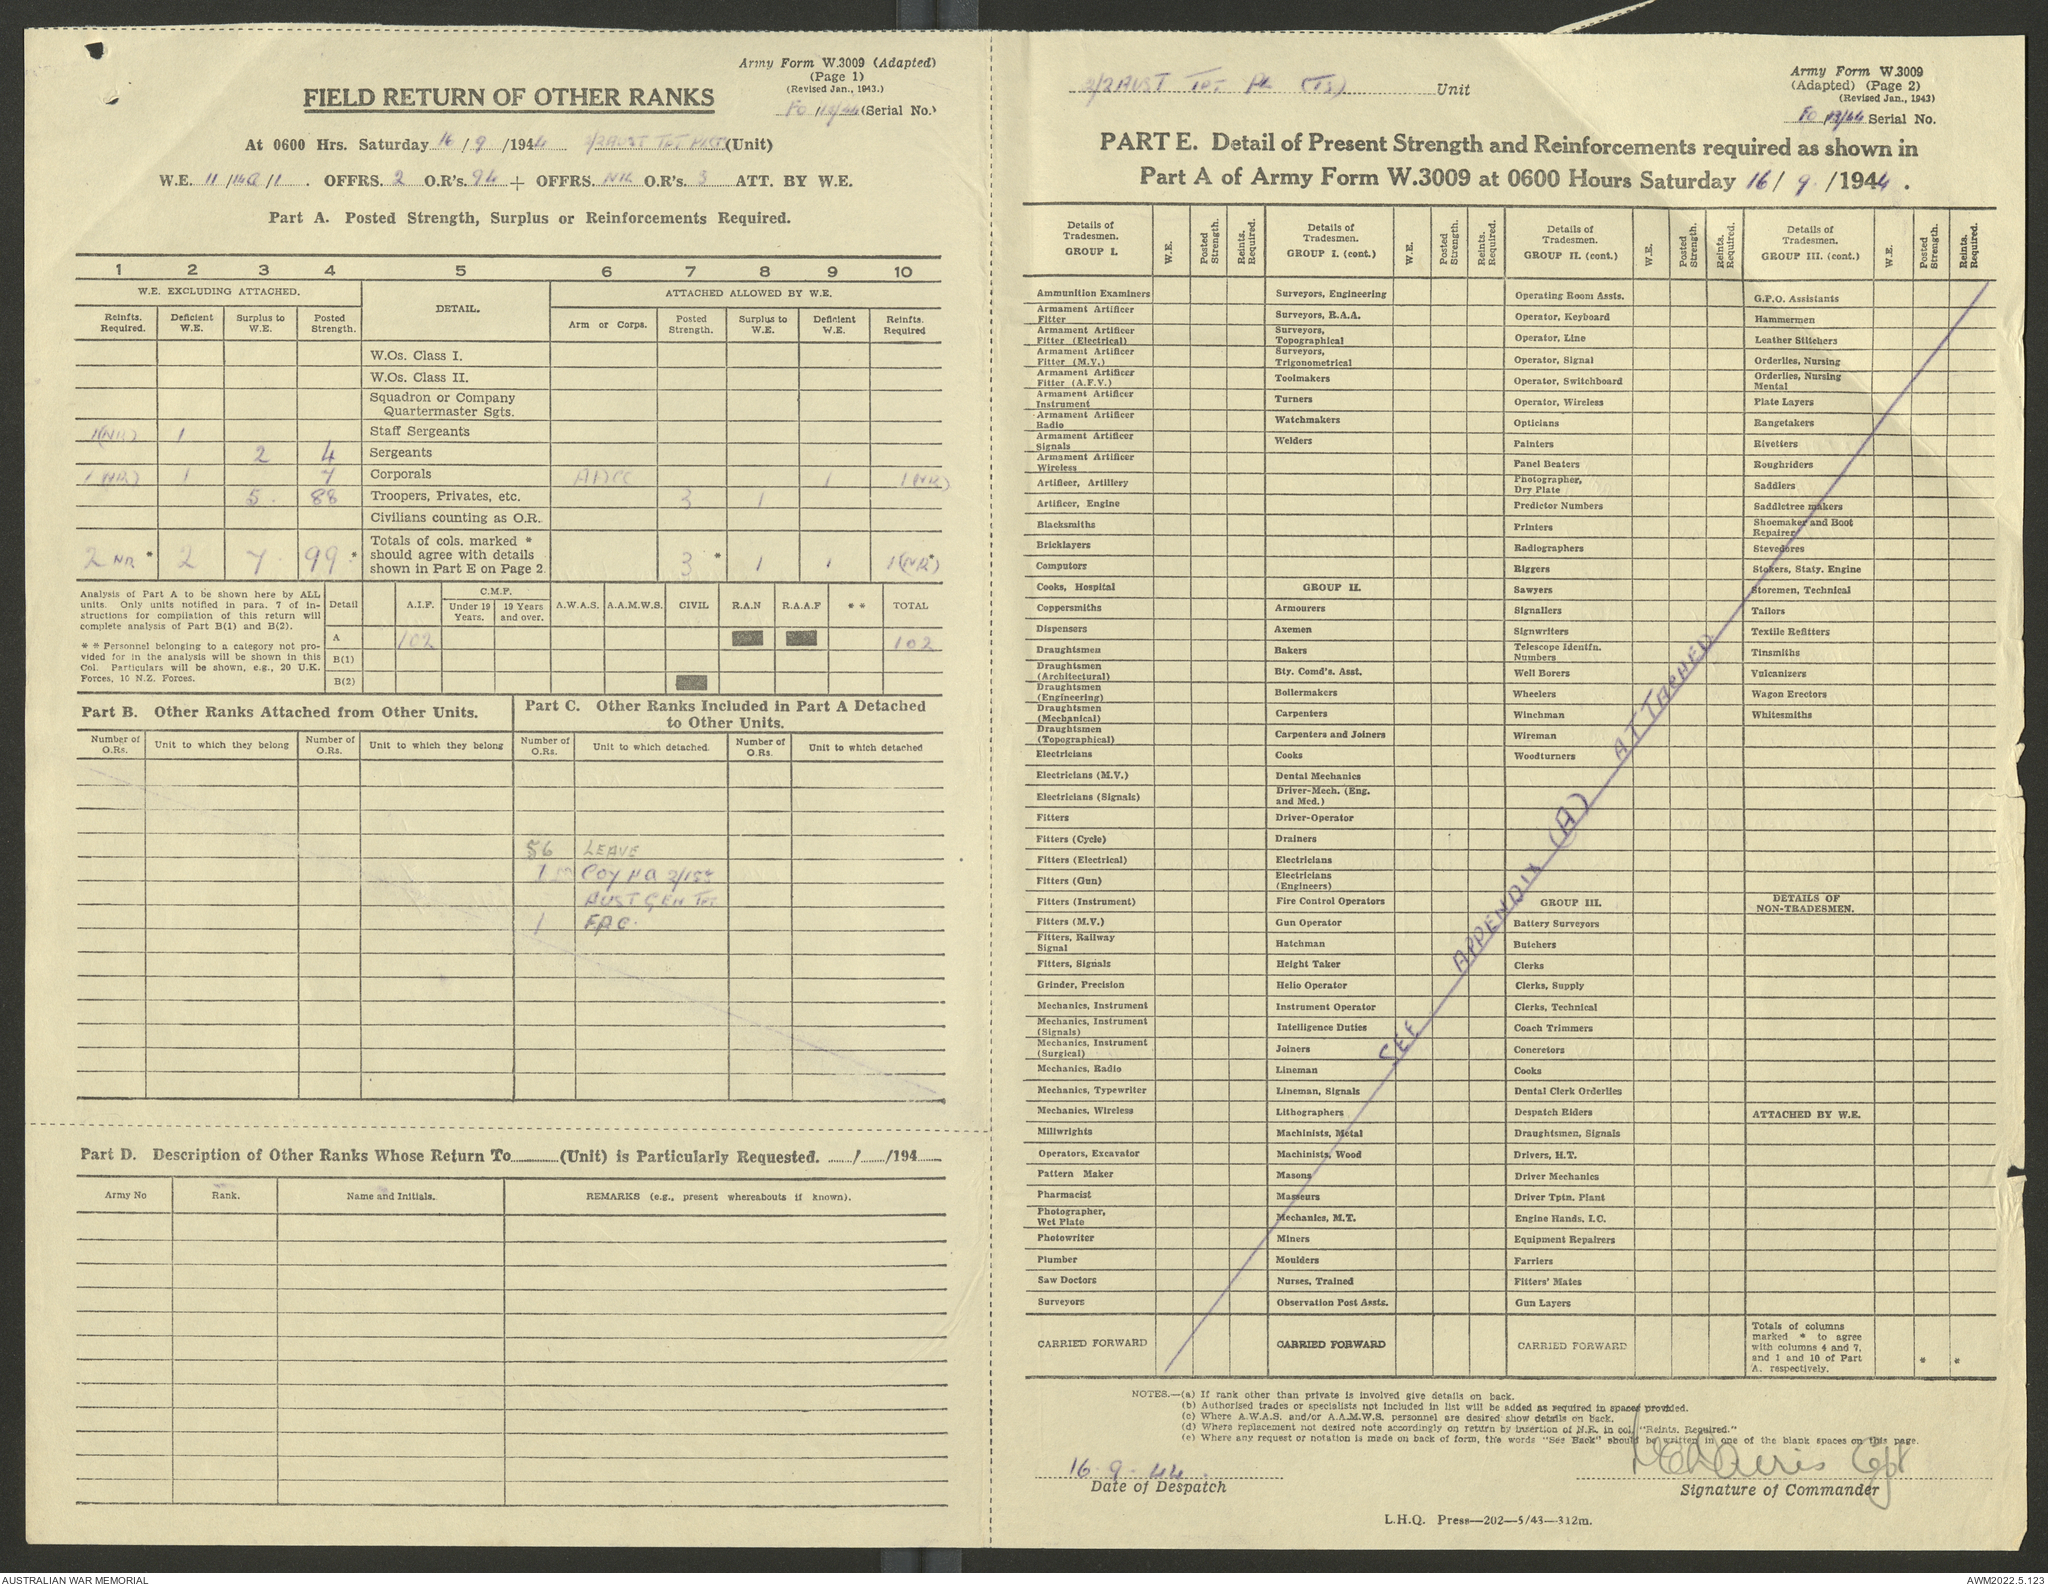 Army Form W.3009 (Adapted)
(Page 1)
(Revised Jan., 1943.)
FIELD RETURN OF OTHER RANKS
(Serial No.)
At 0600 Hrs. Saturday 16 / 9 /1944 2/2 AUST TPT (Unit)
W.E. 11 / /1 . OFFRS. 2 O.R's. 94 + OFFRS. NIL O.R's. 3 ATT. BY W.E.
Part A. Posted Strength, Surplus or Reinforcements Required.
1 2 3 4 5 6 7 8 9 10
W.E. EXCLUDING ATTACHED. DETAIL. ATTACHED ALLOWED BY W.E.
Reinfts. Required. Deficient W.E. Surplus to W.E. Posted Strength. Arm or Corps. Posted Strength. Surplus to W.E. Deficient W.E. Reinfts. Required
W.Os. Class I.
W.Os. Class II.
Squadron or Company
Quartermaster Sgts.
1(NR) 1 Staff Sergeants
2 4 Sergeants
1(NR) 1 7 Corporals AACC 1 1(NR)
5. 88 Troopers, Privates, etc. 3 1
Civilians counting as O.R.
Totals of cols. marked *
should agree with details
shown in Part E on Page 2.
2 NR * 2 7. 99 * 3 * 1 1 1(NR*)
Analysis of Part A to be shown here by ALL
units. Only units notified in para. 7 of in-
structions for compilation of this return will
complete analysis of Part B(1) and B(2).
* * Personnel belonging to a category not pro-
vided for in the analysis will be shown in this
Col. Particulars will be shown, e.g., 20 U.K.
Forces, 10 N.Z. Forces.
Detail A.I.F. C.M.F. Under 19 Years. 19 Years and over. A.W.A.S. A.A.M.W.S. CIVIL R.A.N R.A.A.F * * TOTAL
A 102 102
B(1)
B(2)
Part B. Other Ranks Attached from Other Units.
Part C. Other Ranks Included in Part A Detached
to Other Units.
Number of O.Rs. Unit to which they belong Number of O.Rs. Unit to which they belong Number of O.Rs. Unit to which detached. Number of O.Rs. Unit to which detached
56 LEAVE
1 COY HQ
AUST GEN TPT
1
Part D. Description of Other Ranks Whose Return To (Unit) is Particularly Requested. / /194
Army No Rank. Name and Initials. REMARKS (e.g., present whereabouts if known).
2/2 AUST TPT PL Unit
Army Form W.3009
(Adapted) (Page 2)
(Revised Jan., 1943)
Serial No.
PART E. Detail of Present Strength and Reinforcements required as shown in
Part A of Army Form W.3009 at 0600 Hours Saturday 16/ 9 /1944 .
Details of Tradesmen. GROUP I. W.E. Posted Strength. Reints. Required.
Details of Tradesmen. GROUP I. (cont.) W.E. Posted Strength. Reints. Required.
Details of Tradesmen. GROUP II. (cont.) W.E. Posted Strength. Reints. Required.
Details of Tradesmen. GROUP III. (cont.) W.E. Posted Strength. Reints. Required.
Ammunition Examiners
Armament Artificer
Fitter
Armament Artificer
Fitter (Electrical)
Armament Artificer
Fitter (M.V.)
Armament Artificer
Fitter (A.F.V.)
Armament Artificer
Instrument
Armament Artificer
Radio
Armament Artificer
Signals
Armament Artificer
Wireless
Artificer, Artillery
Artificer, Engine
Blacksmiths
Bricklayers
Computors
Cooks, Hospital
Coppersmiths
Dispensers
Draughtsmen
Draughtsmen
(Architectural)
Draughtsmen
(Engineering)
Draughtsmen
(Mechanical)
Draughtsmen
(Topographical)
Electricians
Electricians (M.V.)
Electricians (Signals)
Fitters
Fitters (Cycle)
Fitters (Electrical)
Fitters (Gun)
Fitters (Instrument)
Fitters (M.V.)
Fitters, Railway
Signal
Fitters, Signals
Grinder, Precision
Mechanics, Instrument
Mechanics, Instrument
(Signals)
Mechanics, Instrument
(Surgical)
Mechanics, Radio
Mechanics, Typewriter
Mechanics, Wireless
Millwrights
Operators, Excavator
Pattern Maker
Pharmacist
Photographer,
Wet Plate
Photowriter
Plumber
Saw Doctors
Surveyors
CARRIED FORWARD
Surveyors, Engineering
Surveyors, R.A.A.
Surveyors,
Topographical
Surveyors,
Trigonometrical
Toolmakers
Turners
Watchmakers
Welders
GROUP II.
Armourers
Axemen
Bakers
Bty. Comd's. Asst.
Boilermakers
Carpenters
Carpenters and Joiners
Cooks
Dental Mechanics
Driver-Mech. (Eng.
and Med.)
Driver-Operator
Drainers
Electricians
Electricians
(Engineers)
Fire Control Operators
Gun Operator
Hatchman
Height Taker
Helio Operator
Instrument Operator
Intelligence Duties
Joiners
Lineman
Lineman, Signals
Lithographers
Machinists, Metal
Machinists, Wood
Masons
Masseurs
Mechanics, M.T.
Miners
Moulders
Nurses, Trained
Observation Post Assts.
CARRIED FORWARD
Operating Room Assts.
Operator, Keyboard
Operator, Line
Operator, Signal
Operator, Switchboard
Operator, Wireless
Opticians
Painters
Panel Beaters
Photographer,
Dry Plate
Predictor Numbers
Printers
Radiographers
Riggers
Sawyers
Signallers
Signwriters
Telescope Identfn.
Numbers
Well Borers
Wheelers
Winchman
Wireman
Woodturners
GROUP III.
Battery Surveyors
Butchers
Clerks
Clerks, Supply
Clerks, Technical
Coach Trimmers
Concretors
Cooks
Dental Clerk Orderlies
Despatch Riders
Draughtsmen, Signals
Drivers, H.T.
Driver Mechanics
Driver Tptn. Plant
Engine Hands, I.C.
Equipment Repairers
Farriers
Fitters' Mates
Gun Layers
CARRIED FORWARD
G.P.O. Assistants
Hammermen
Leather Stitchers
Orderlies, Nursing
Orderlies, Nursing
Mental
Plate Layers
Rangetakers
Rivetters
Roughriders
Saddlers
Saddletree makers
Shoemaker and Boot
Repairer
Stevedores
Stokers, Staty. Engine
Storemen, Technical
Tailors
Textile Refitters
Tinsmiths
Vulcanizers
Wagon Erectors
Whitesmiths
DETAILS OF
NON-TRADESMEN.
ATTACHED BY W.E.
Totals of columns
marked * to agree
with columns 4 and 7,
and 1 and 10 of Part
A. respectively.
* *
SEE APPENDIX (A) ATTACHED
NOTES.—(a) If rank other than private is involved give details on back.
(b) Authorised trades or specialists not included in list will be added as required in spaces provided.
(c) Where A.W.A.S. and/or A.A.M.W.S. personnel are desired show details on back.
(d) Where replacement not desired note accordingly on return by insertion of N.R. in col. "Reints. Required."
(e) Where any request or notation is made on back of form, the words "See Back" should be written in one of the blank spaces on this page.
16-9-44.
Date of Despatch
Capt
Signature of Commander
L.H.Q. Press—202—5/43—312m.
AUSTRALIAN WAR MEMORIAL
AWM2022.5.123